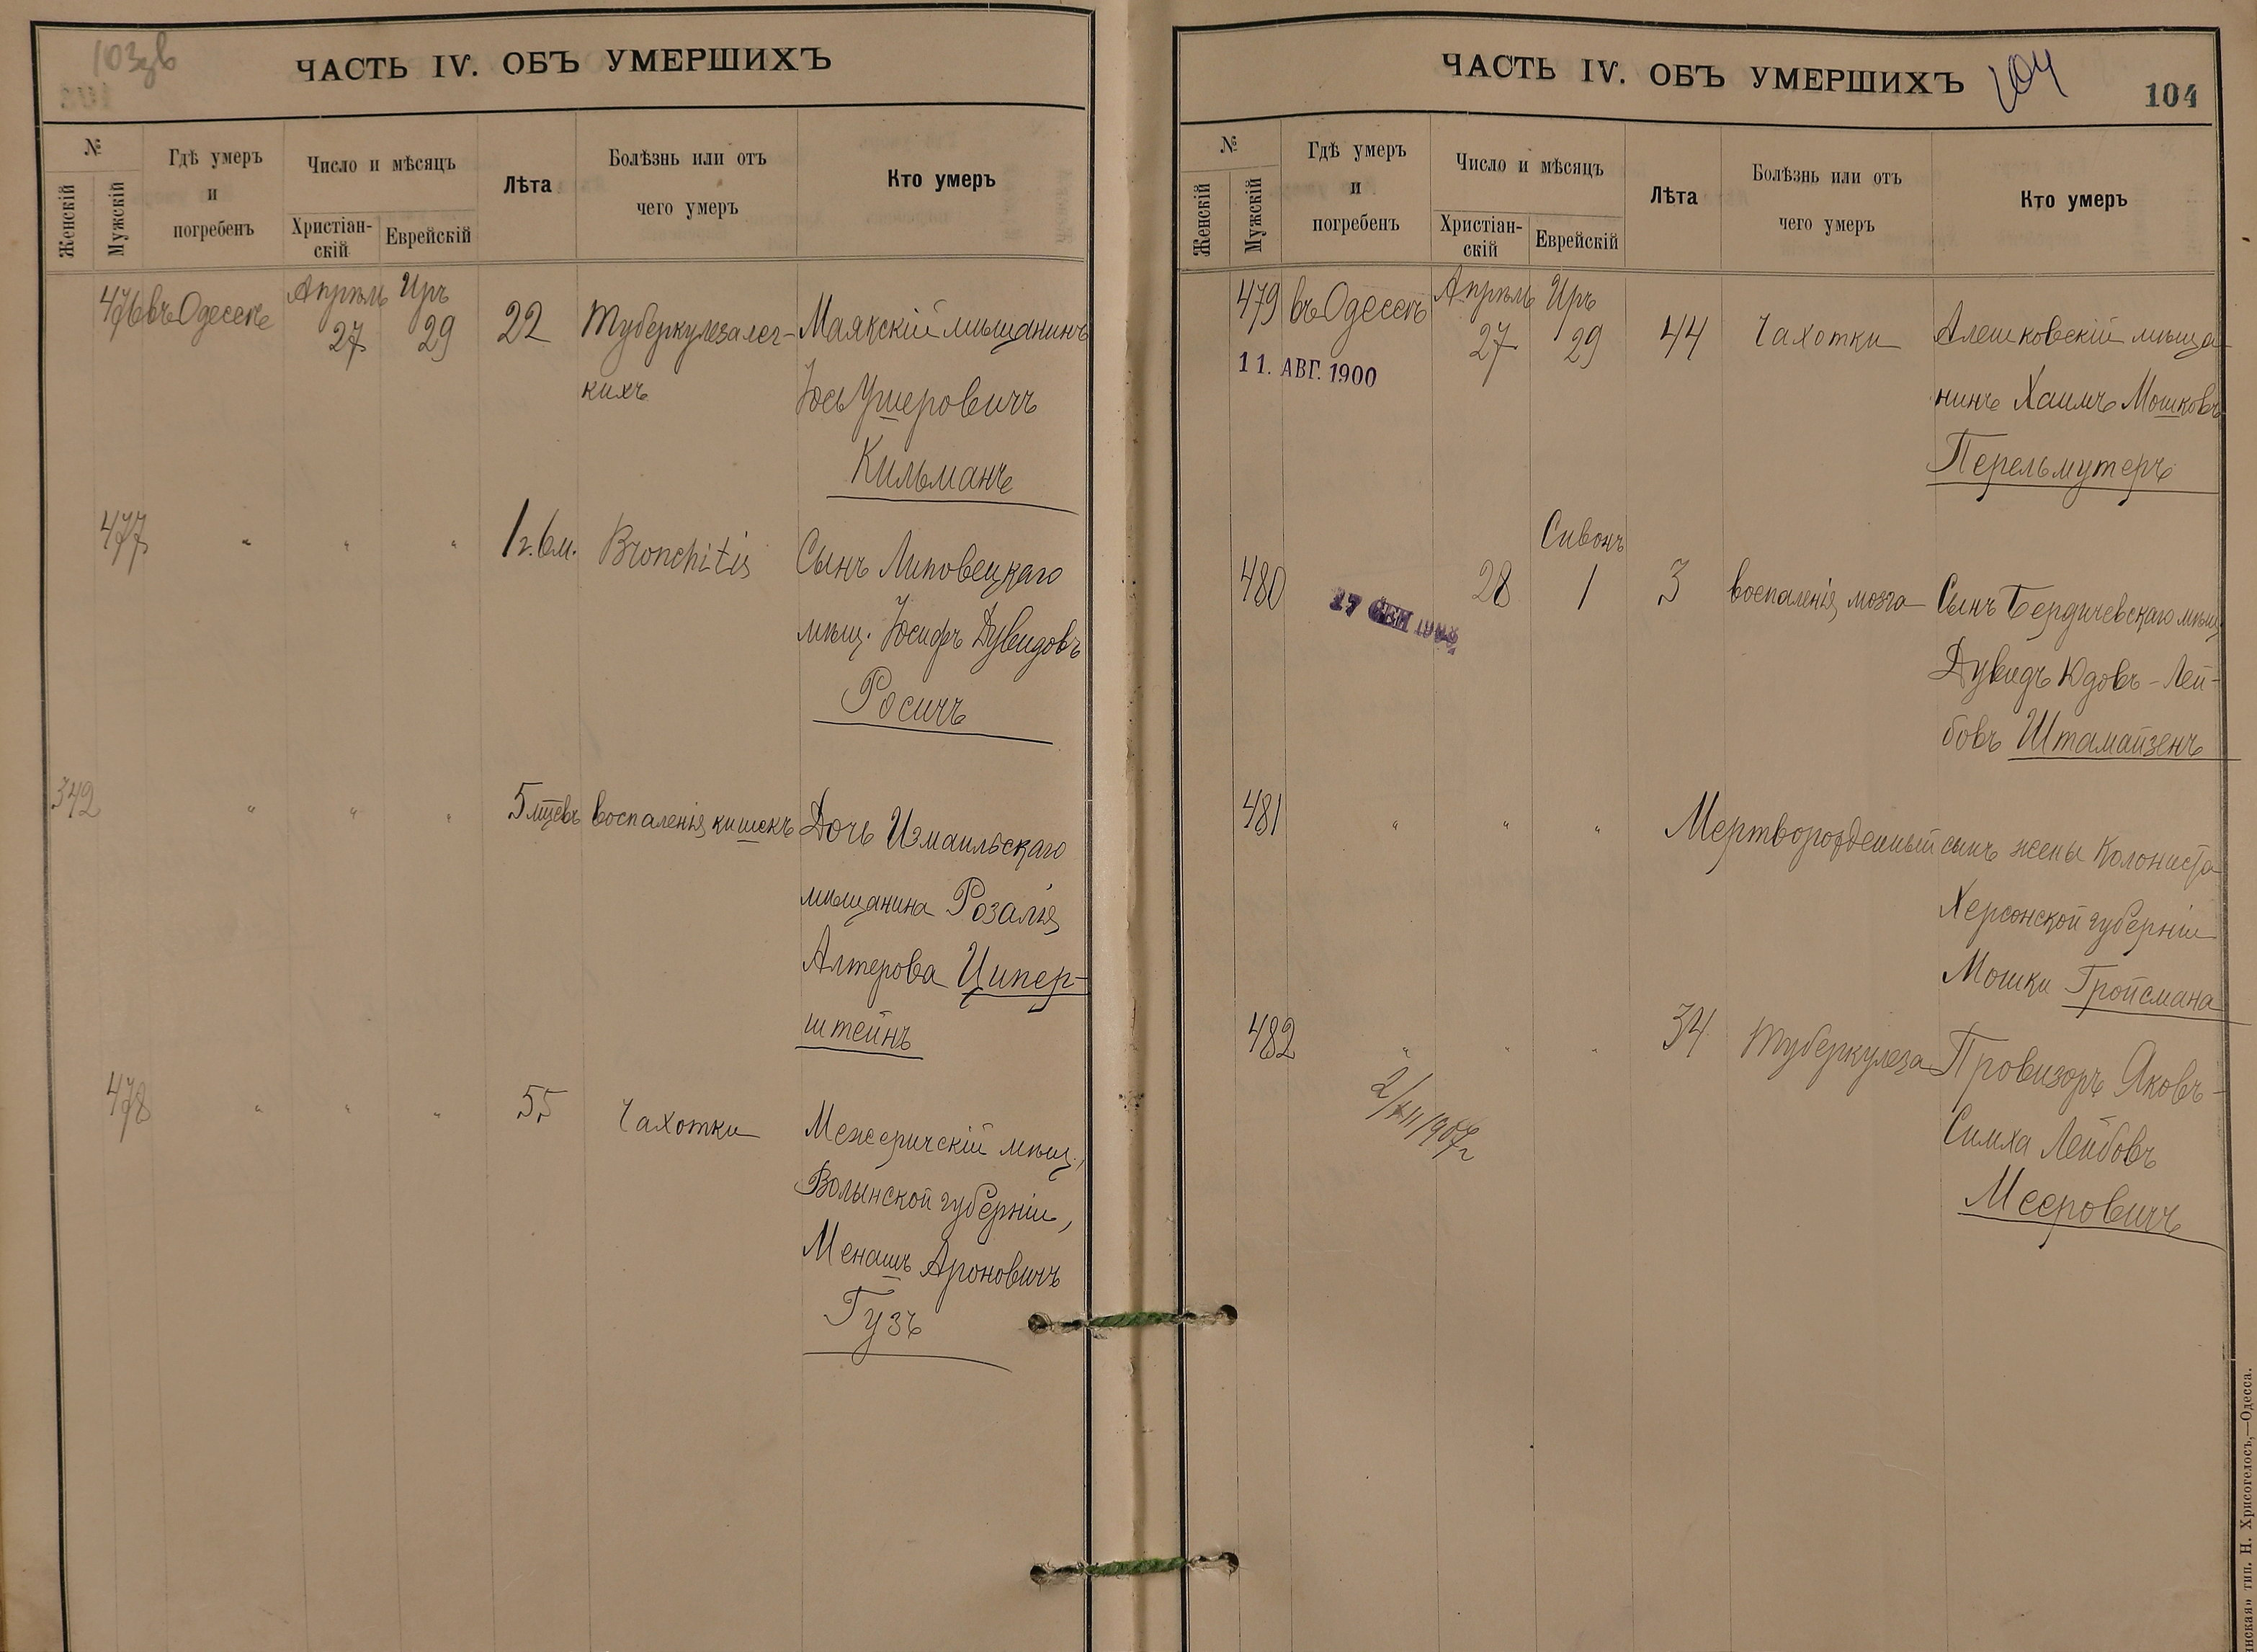 103зв
ЧАСТЬ IV. ОБЪ УМЕРШИХЪ
№
Женскій
Мужскій
Гдѣ умеръ
и
погребенъ
Число и мѣсяцъ
Христіан-
скій
Еврейскій
Лѣта
Болѣзнь или отъ
чего умеръ
Кто умеръ
476 въ Одессѣ Апрѣль 27 Иръ 29 22 Туберкулеза лег-
кихъ
Маякскій мѣщанинъ
Іось Ушеровичъ
Кильманъ
477 " " " 1 г. 6 м. Bronchitis
Сынъ Липовецкаго
мѣщ. Іосифъ Дувидовъ
Росичъ
342 " " " 5 мцевъ воспаленія кишекъ
Дочь Измаильскаго
мѣщанина Розалія
Алтерова Ципер-
штейнъ
478 " " " 55 Чахотки
Межеричскій мѣщ.,
Волынской губерніи,
Менашъ Ароновичъ
Гузъ
ЧАСТЬ IV. ОБЪ УМЕРШИХЪ
104
104
№
Женскій
Мужскій
Гдѣ умеръ
и
погребенъ
Число и мѣсяцъ
Христіан-
скій
Еврейскій
Лѣта
Болѣзнь или отъ
чего умеръ
Кто умеръ
479 въ Одессѣ Апрѣль 27 Иръ 29 44 Чахотки
11. АВГ. 1900
Алешковскій мѣща-
нинъ Хаимъ Мошковъ
Перельмутеръ
Сивонъ
480 28 1 3 воспаленія мозга
17 СЕН
Сынъ Бердичевскаго мѣщ.
Дувидъ Юдовъ-Лей-
бовъ Штамайзенъ
481 " " " Мертворожденный сынъ жены Колониста
Херсонской губерніи
Мошки Гройсмана
482 " " " 34 Туберкулеза
2/XII 1907 г
Провизоръ Яковъ-
Симха Лейбовъ
Мееровичъ
тип. Н. Хрисогелосъ,—Одесса.